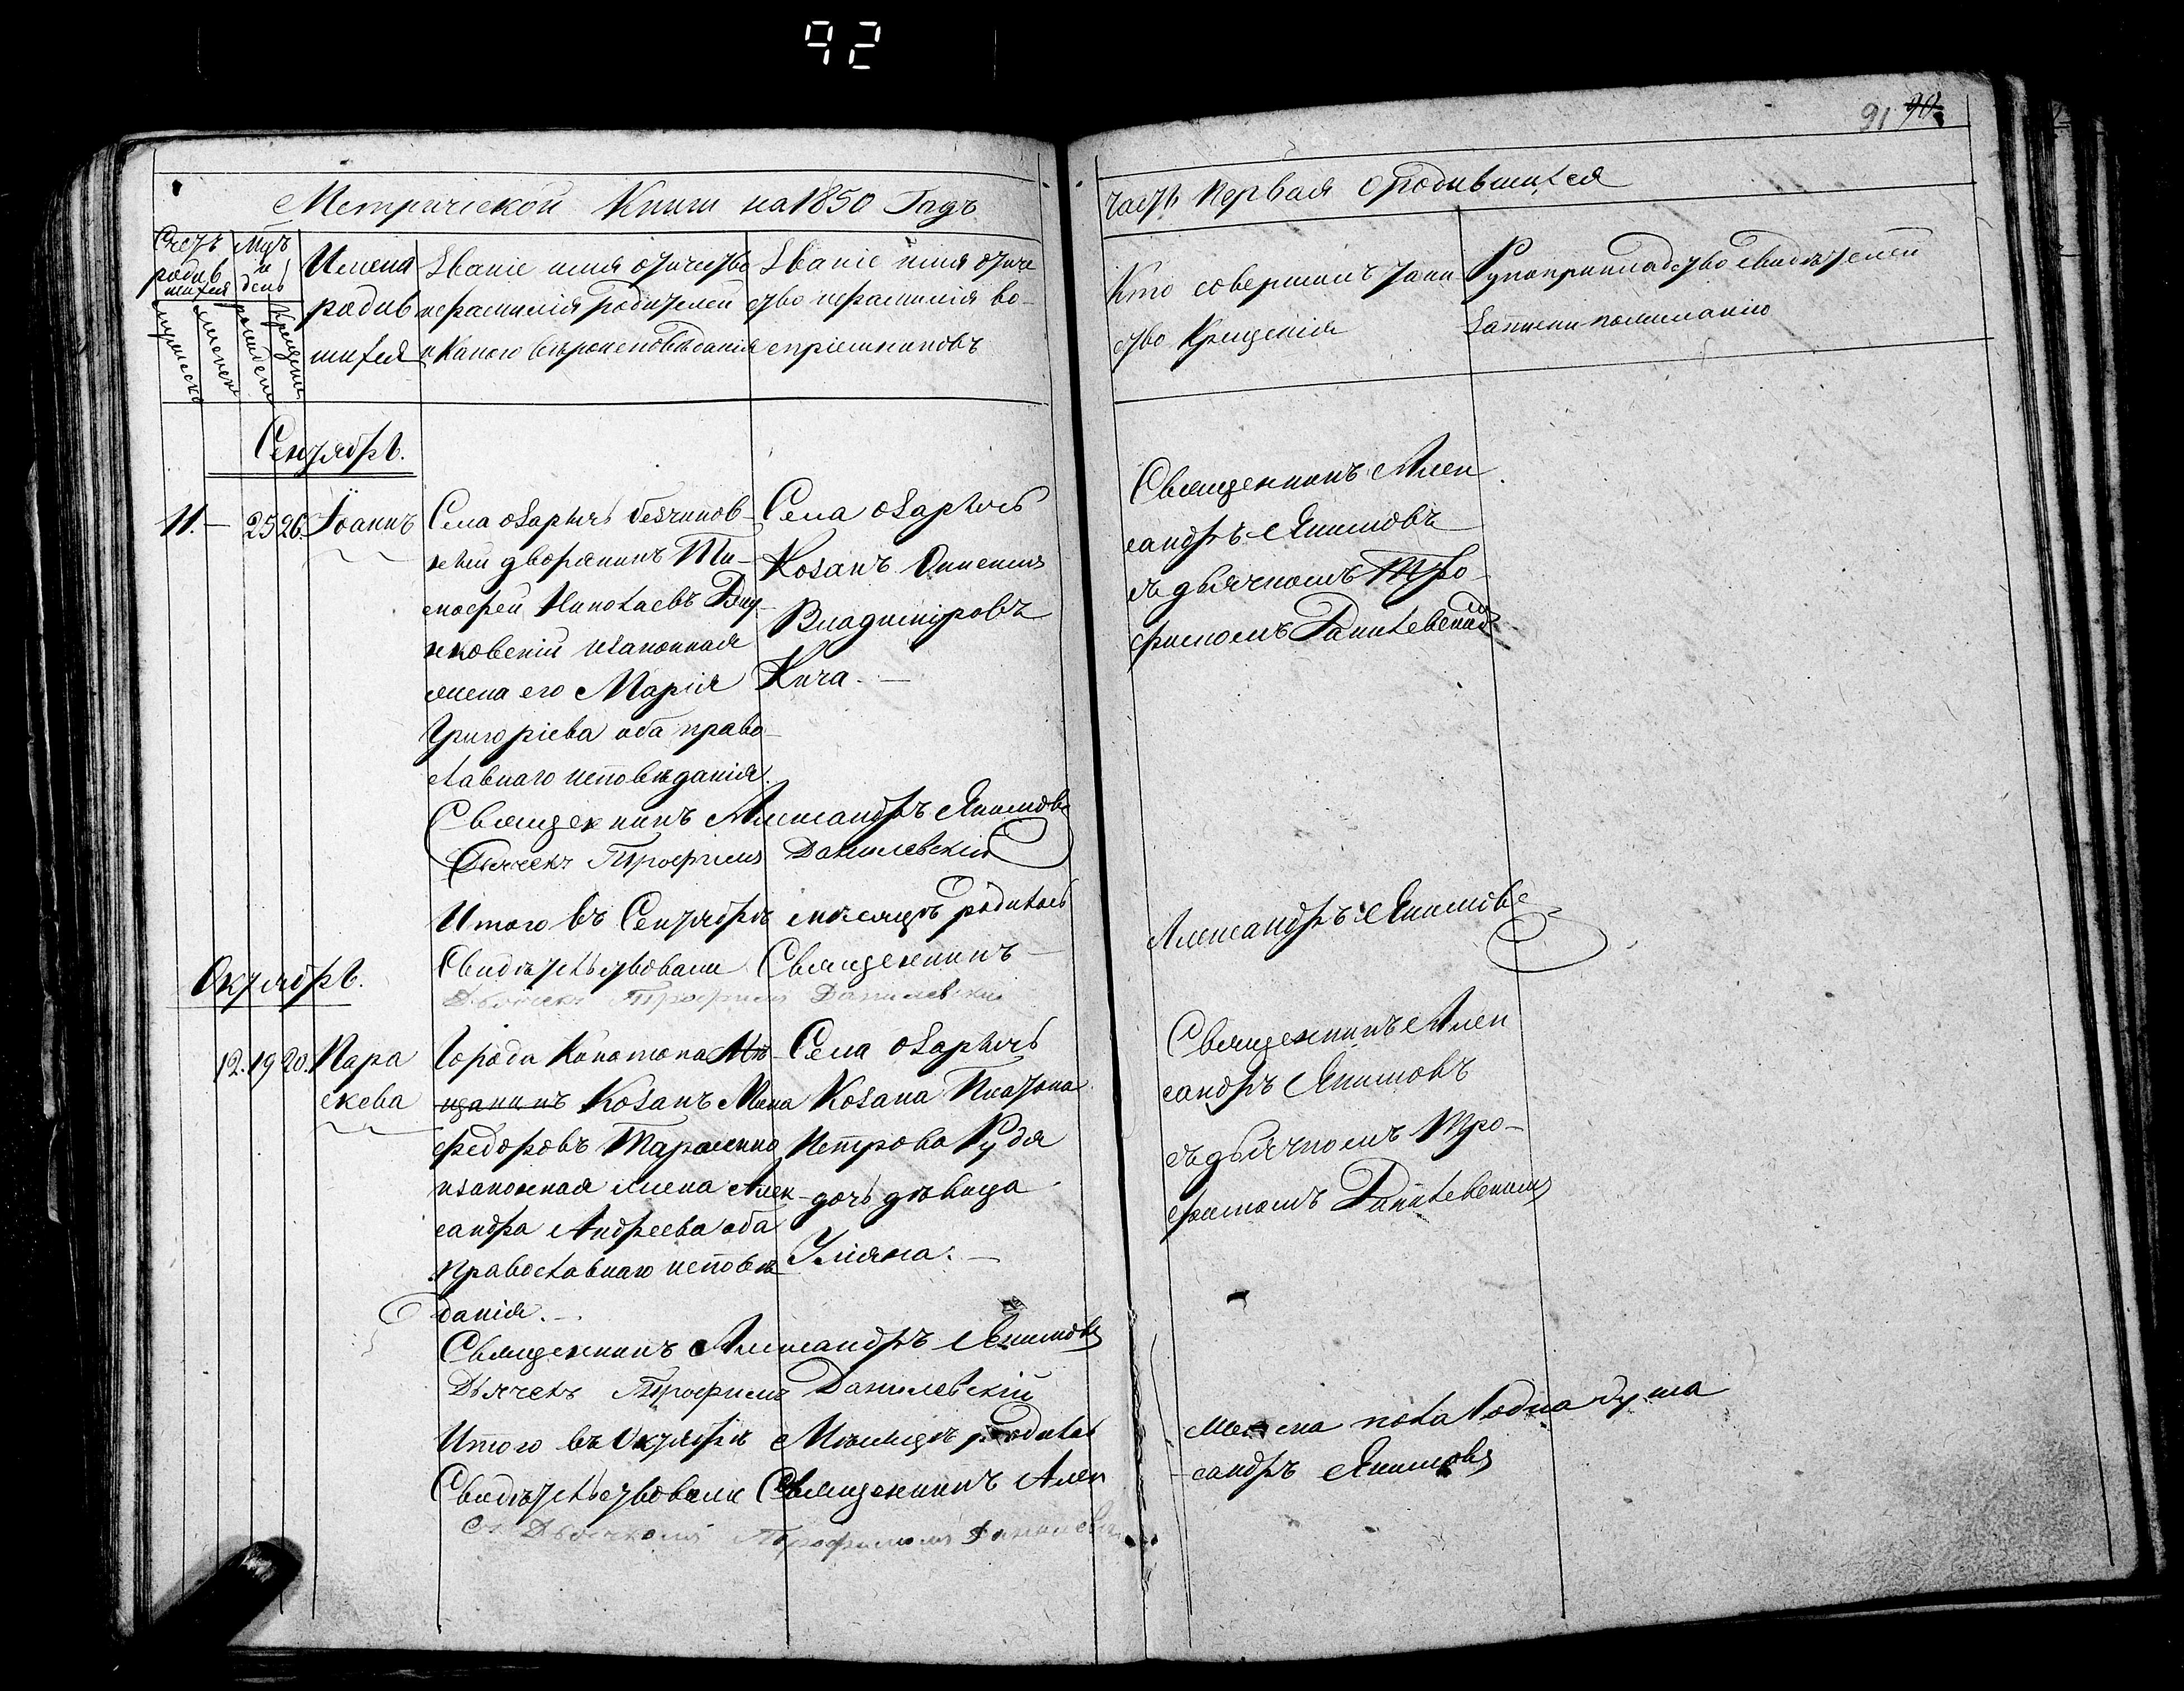 92
91 90
Метрической Книги на 1850 Годъ
часть первая о родившихся
Счетъ родившихся
мужеска
женска
Мцъ и день
рожденія
крещенія
Имена
родив
шихся
Званіе имя отчество
и фамилія родителей
и какого вѣроисповѣданія
Званіе имя отче
ство и фамилія во-
спріемниковъ
Кто совершилъ таин
ство крещенія
Рукоприкладство свидѣтелей
записи по желанію
Сентябрь.
11. — 25 26. Іоаннъ
Села Озаричъ безчинов-
ный дворянинъ Ти-
мофей Николаевъ
и законная
жена его Марія
Григоріева оба право-
славнаго исповѣданія.
Села Озаричъ
Козакъ
Владиміровъ
Кича. —
Священникъ Алек
сандръ Якимовъ
съ дьячкомъ Тро-
фимомъ Данилевскимъ
Священникъ Александръ Якимовъ
Дьячекъ Трофимъ Данилевскій
Итого въ Сентябрѣ мѣсяцѣ родилось
Свидѣтельствовали Священникъ —
Александръ Якимовъ
Дьячекъ Трофимъ Данилевскій
Октябрь.
12. 19 20. Пара
скева
Города Конотопа Мѣ-
щанинъ Козакъ
Федоровъ Тараненко
и законная жена Алек-
сандра Андреева оба
православнаго исповѣ
данія. —
Села Озаричъ
Козака Платона
Петрова Рудя
дочь дѣвица
Уліяна. —
Священникъ Алек
сандръ Якимовъ
съ дьячкомъ Тро-
фимомъ Данилевскимъ
Священникъ Александръ Якимовъ
Дьячекъ Трофимъ Данилевскій
Итого въ Октябрѣ Мѣсяцѣ родилась
женска пола 1 одна душа
Свидѣтельствовали Священникъ Алек
сандръ Якимовъ
съ Дьячкомъ Трофимомъ